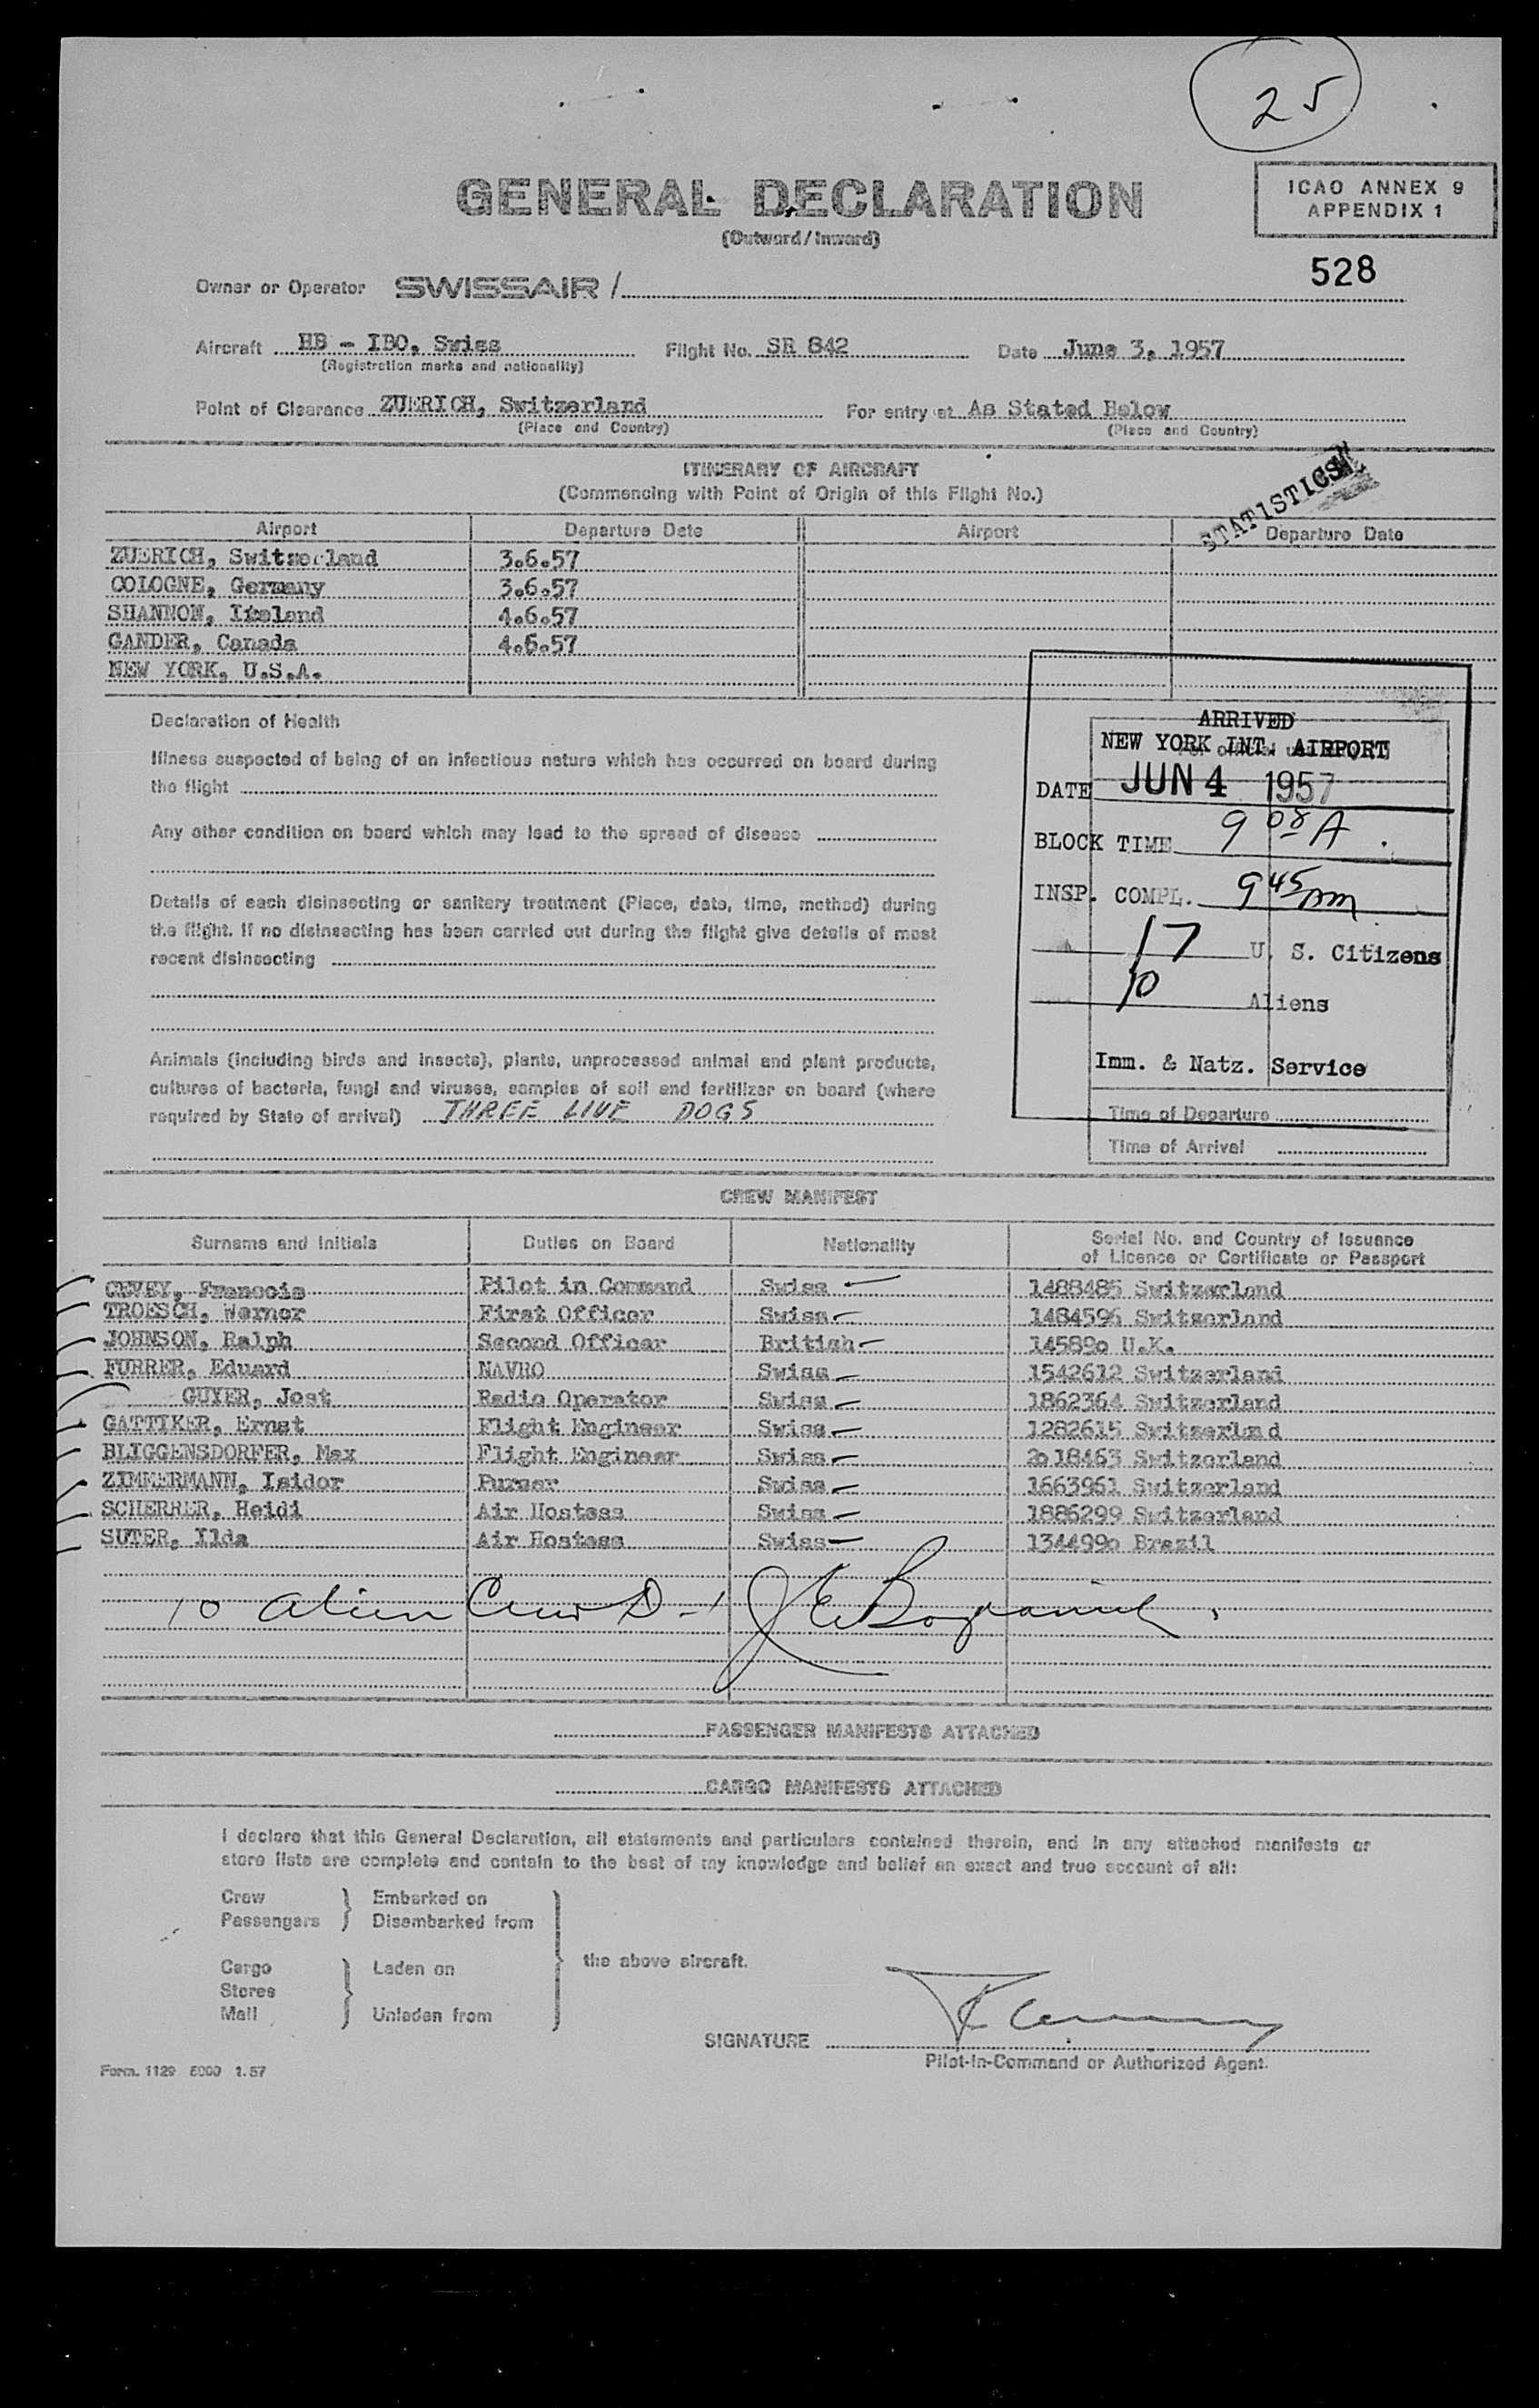 25
GENERAL DECLARATION
(Outward/Inward)
ICAO ANNEX 9
APPENDIX 1
528
Owner or Operator SWISSAIR /
Aircraft HB - IBO, Swiss Flight No. SR 842 Date June 3, 1957
(Registration marks and nationality)
Point of Clearance ZUERICH, Switzerland For entry at As Stated Below
(Place and Country) (Place and Country)
ITINERARY OF AIRCRAFT
(Commencing with Point of Origin of this Flight No.)
STATISTICS
Airport Departure Date Airport Departure Date
ZUERICH, Switzerland 3.6.57
COLOGNE, Germany 3.6.57
SHANNON, Ireland 4.6.57
GANDER, Canada 4.6.57
NEW YORK, U.S.A.
Declaration of Health
Illness suspected of being of an infectious nature which has occurred on board during
the flight
Any other condition on board which may lead to the spread of disease
Details of each disinsecting or sanitary treatment (Place, date, time, method) during
the flight. If no disinsecting has been carried out during the flight give details of most
recent disinsecting
Animals (including birds and insects), plants, unprocessed animal and plant products,
cultures of bacteria, fungi and viruses, samples of soil and fertilizer on board (where
required by State of arrival) THREE LIVE DOGS
ARRIVED
NEW YORK INT. AIRPORT
DATE JUN 4 1957
BLOCK TIME 9 08 A
INSP. COMPL. 9 45 am
17 U. S. Citizens
10 Aliens
Imm. & Natz. Service
Time of Departure
Time of Arrival
CREW MANIFEST
Surname and Initials Duties on Board Nationality Serial No. and Country of Issuance
of Licence or Certificate or Passport
CEVEY, Francois Pilot in Command Swiss 1488485 Switzerland
TROESCH, Werner First Officer Swiss 1484596 Switzerland
JOHNSON, Ralph Second Officer British 14589o U.K.
FURRER, Eduard NAVRO Swiss 1542612 Switzerland
GUYER, Jost Radio Operator Swiss 1862364 Switzerland
GATTIKER, Ernst Flight Engineer Swiss 1282615 Switzerland
BLIGGENSDORFER, Max Flight Engineer Swiss 2o18463 Switzerland
ZIMMERMANN, Isidor Purser Swiss 1663961 Switzerland
SCHERRER, Heidi Air Hostess Swiss 1886299 Switzerland
SUTER, Ilda Air Hostess Swiss 134499o Brazil
10 alien Crew D-1
PASSENGER MANIFESTS ATTACHED
CARGO MANIFESTS ATTACHED
I declare that this General Declaration, all statements and particulars contained therein, and in any attached manifests or
store lists are complete and contain to the best of my knowledge and belief an exact and true account of all:
Crew Embarked on
Passengers Disembarked from
the above aircraft.
Cargo Laden on
Stores
Mail Unladen from
SIGNATURE
Pilot-in-Command or Authorized Agent.
Form. 1129 5000 1.57